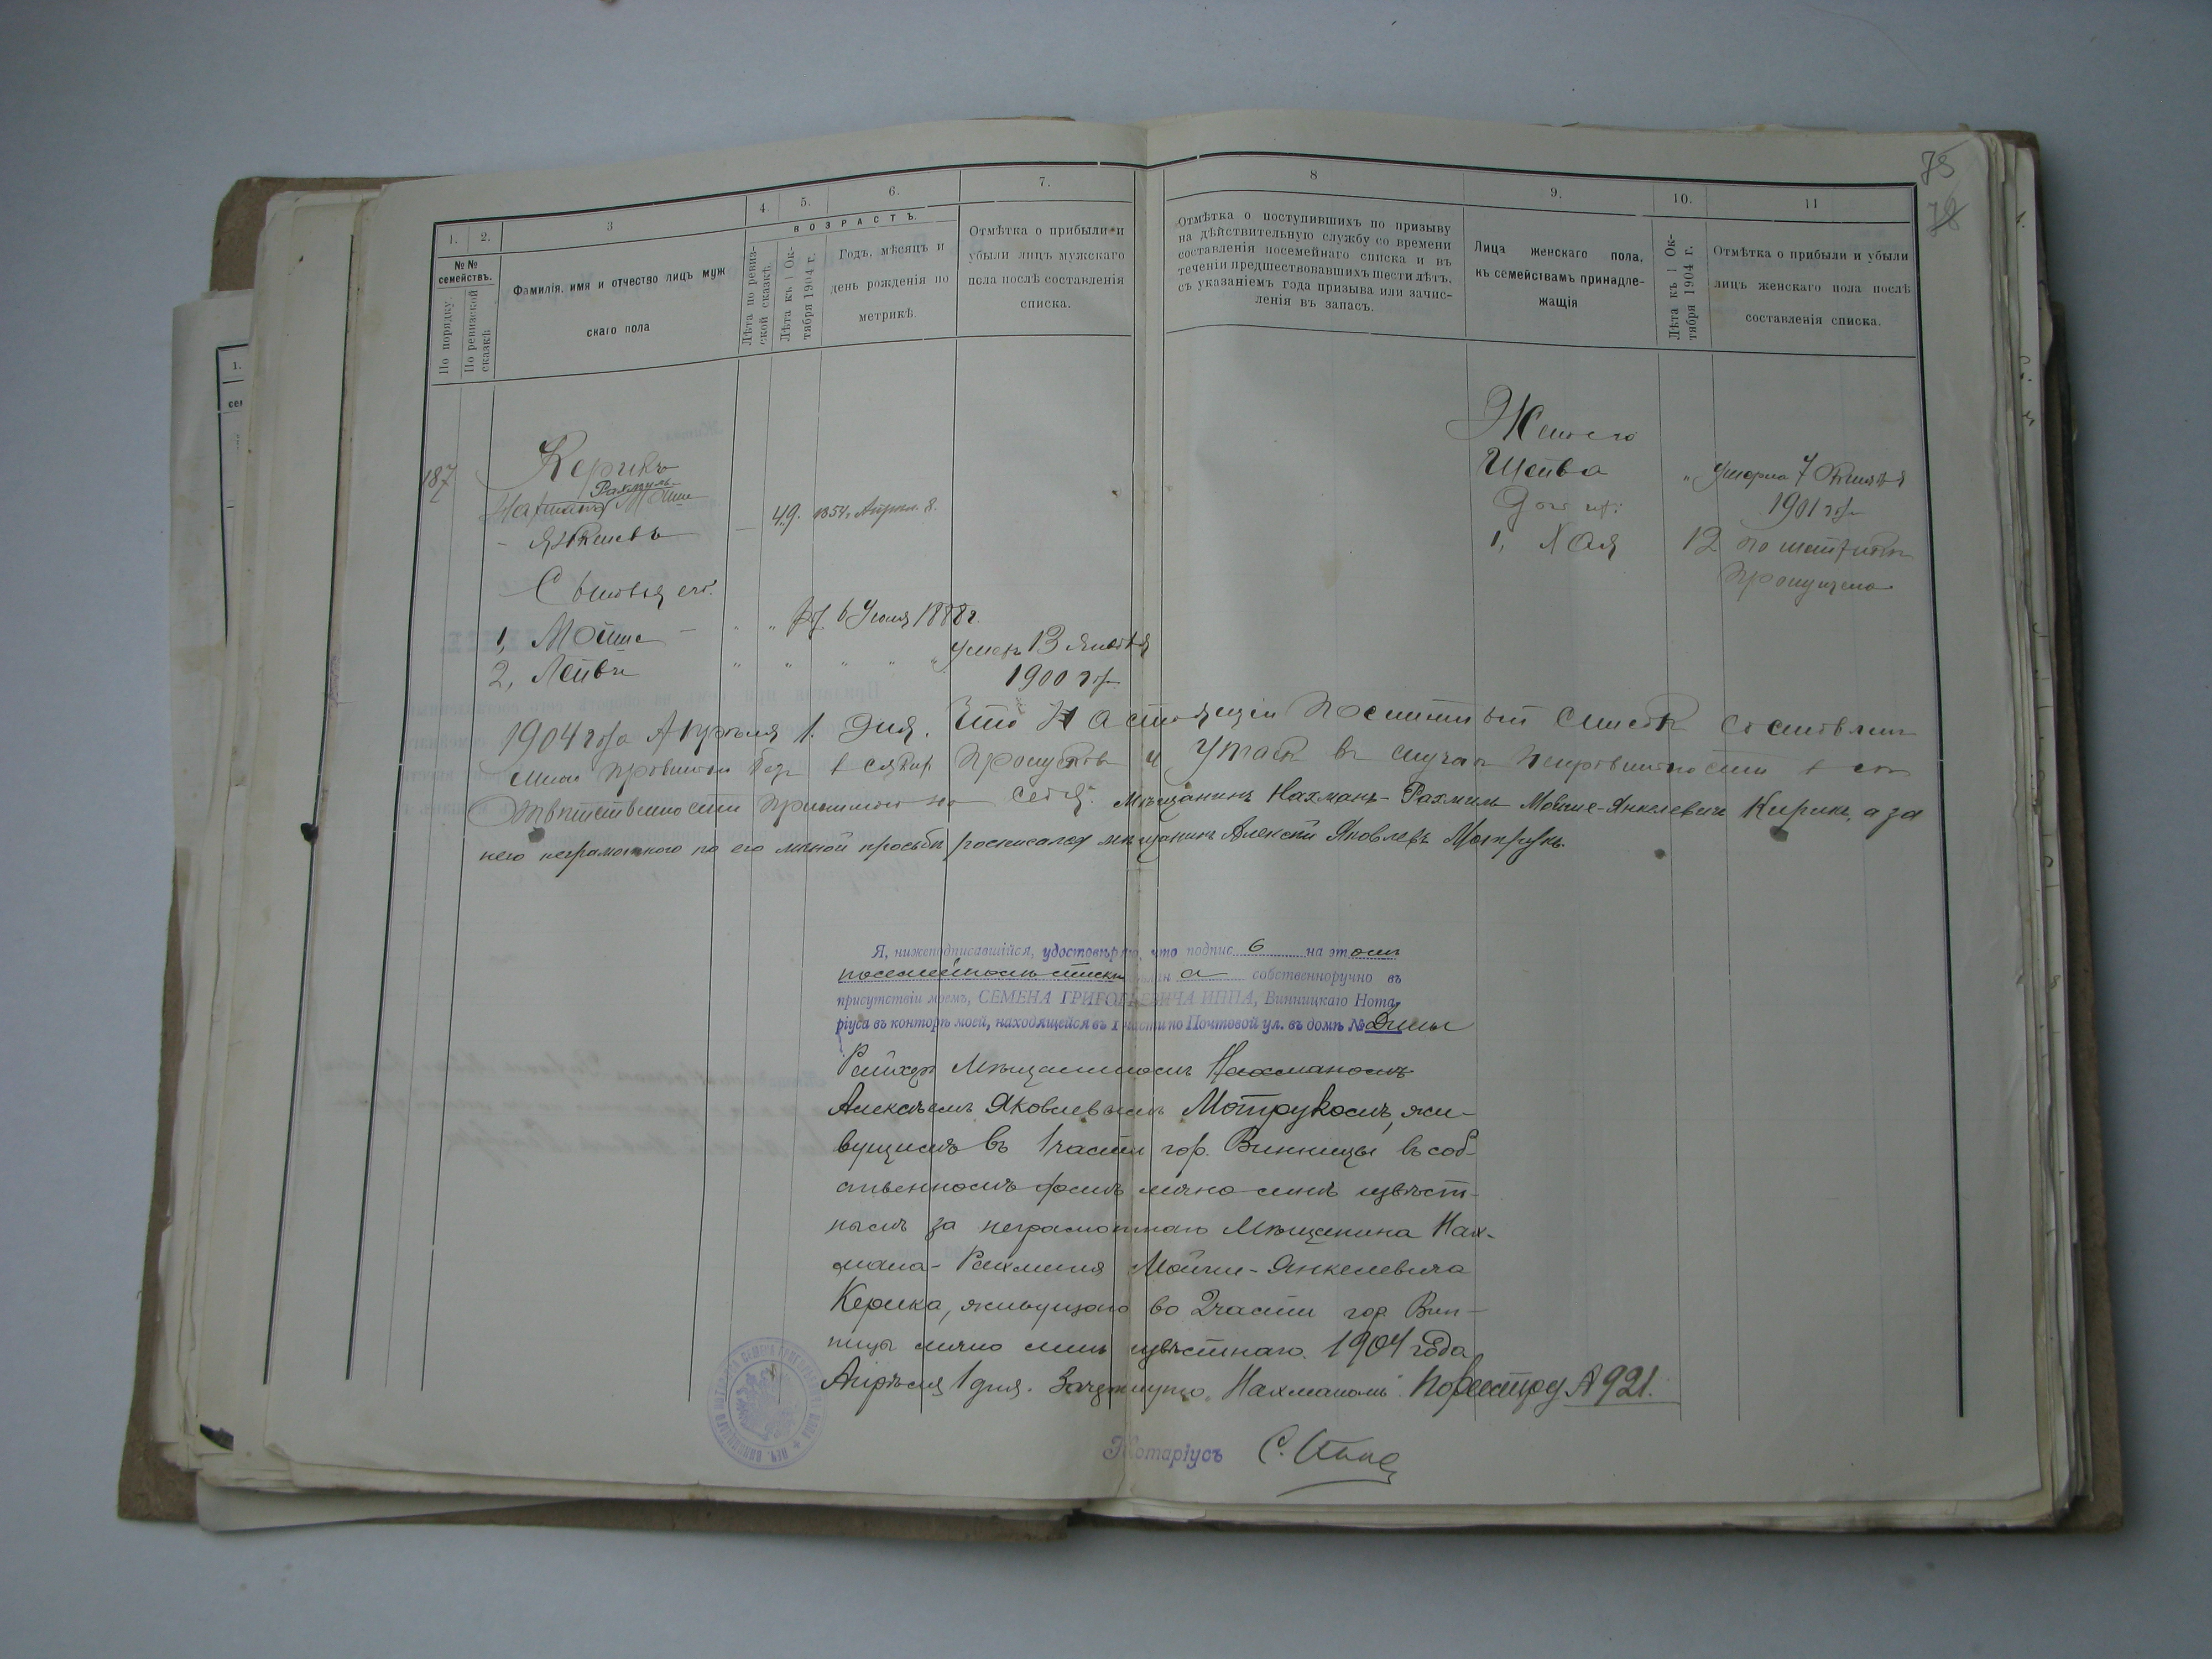 75
1. 2. 3 4. 5. 6. 7. 8 9. 10. 11
№№ семействъ.
По порядку.
По ревизской сказкѣ.
Фамилія, имя и отчество лицъ муж
скаго пола
ВОЗРАСТЪ.
Лѣта по ревиз-
ской сказкѣ.
Лѣта къ 1 Ок-
тября 1904 г.
Годъ, мѣсяцъ и
день рожденія по
метрикѣ.
Отмѣтка о прибыли и
убыли лицъ мужскаго
пола послѣ составленія
списка.
Отмѣтка о поступившихъ по призыву
на дѣйствительную службу со времени
составленія посемейнаго списка и въ
теченіи предшествовавшихъ шести лѣтъ,
съ указаніемъ года призыва или зачис-
ленія въ запасъ.
Лица женскаго пола,
къ семействамъ принадле-
жащія
Лѣта къ 1 Ок-
тября 1904 г.
Отмѣтка о прибыли и убыли
лицъ женскаго пола послѣ
составленія списка.
187
Керикъ
Рахмиль
Нахманъ Мошк
Янкелевъ
49. 1854. Апрѣл. 8.
Сыновья его:
1, Мошко 6 Іюля 1888 г.
2, Лейба умеръ 13 Января
1900 года
Жена его
Шейва умерла 7
1901 года
Дочь их:
1, Хая 12 по метрикѣ
пропущена
1904 года Апрѣля 1. дня. Что настоящій посемейный списокъ составленъ
мною правильно безъ всяких пропусковъ и утаекъ въ случаѣ неправильности всю
отвѣтственность принимаю на себя. Мѣщанинъ Нахманъ-Рахмиль Мойше-Янкелевичъ Керикъ, а за
него неграмотного по его личной просьбѣ росписался мѣщанинъ Алексѣй Яковлевъ Мотрукъ.
Я, нижеподписавшійся, удостовѣряю, что подпись на этомъ
посемейномъ спискѣ сдѣлана собственноручно въ
присутствіи моемъ, СЕМЕНА ГРИГОРЬЕВИЧА ИППА, Винницкаго Нота
ріуса въ конторѣ моей, находящейся въ 1 части по Почтовой ул. въ домѣ № Дины
Райхер Мѣщаниномъ Нахманомъ
Алексѣемъ Яковлевымъ Мотрукомъ, жи-
вущимъ въ 1 части гор. Винницы въ соб-
ственномъ домѣ лично мнѣ извѣст-
нымъ за неграмотнаго Мѣщанина Нах-
мана-Рахмиля Мойше-Янкелевича
Керика, живущаго во 2 части гор. Вин-
ницы лично мнѣ извѣстнаго. 1904 года
Апрѣля 1 дня. Зачеркнуто "Нахманомъ" По реестру № 921.
Нотаріусъ С. Иппа